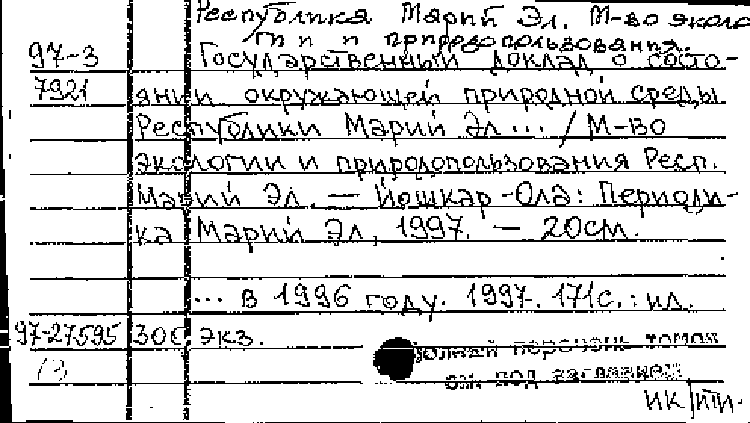 Республика Марий Эл. М-во эколо
гии и природопользования.
97-3 Государственный доклад о состо-
7921 янии окружающей природной среды
Республики Марий Эл ... / М-во
экологии и природопользования Респ.
Марий Эл. — Йошкар-Ола: Периоди-
ка Марий Эл, 1997. — 20см.
... в 1996 году. 1997. 171с.: ил.
97-27595 300 экз.
полный перечень томов
см под заглавием